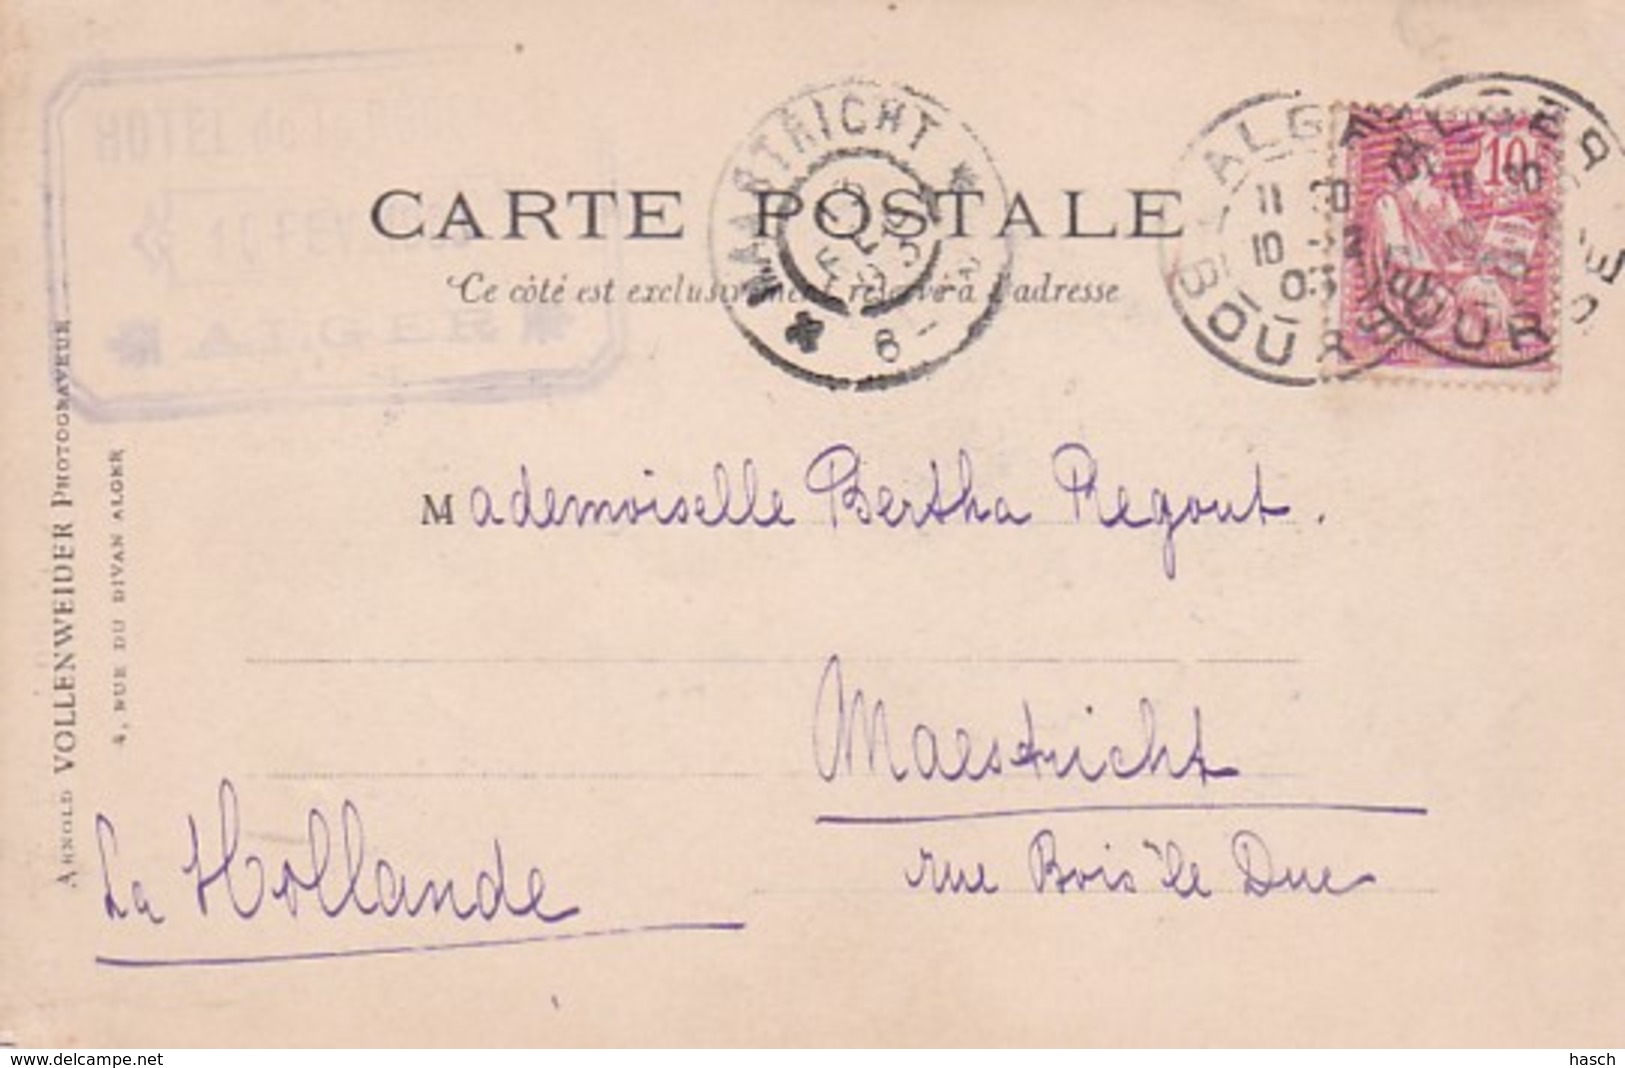 HOTEL de la
ALGER
CARTE POSTALE
Ce côté est exclusivement réservé à l'adresse
MAASTRICHT
6-
ALGER
11 30
10 -2
03
BOURSE
ALGER
BOURSE
10
Mademoiselle Bertha Regout.
Maestricht
rue Bois le Duc
La Hollande
ARNOLD VOLLENWEIDER PHOTOGRAVEUR
4, RUE DU DIVAN ALGER
www.delcampe.net
hasch